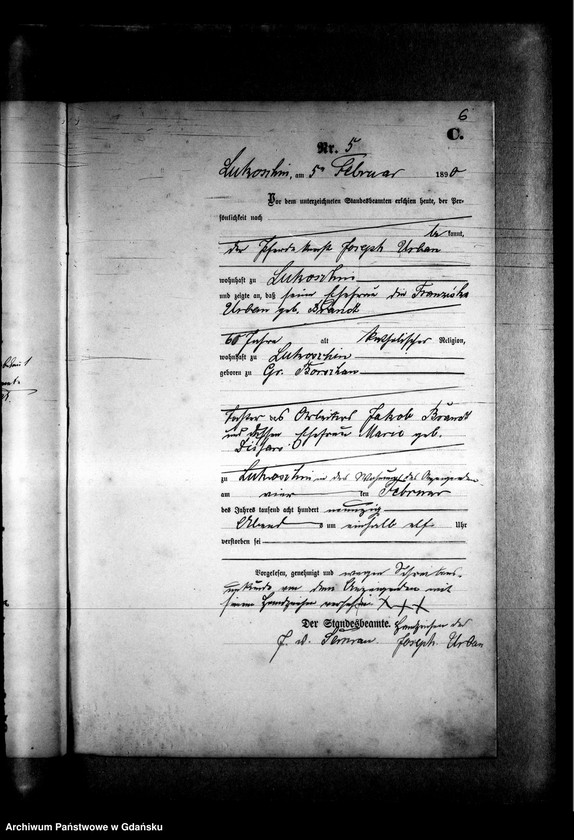 6
C.
Nr. 5
Lukoschin, am 5ten Februar 1890
Vor dem unterzeichneten Standesbeamten erschien heute, der Per-
sönlichkeit nach
be kannt,
der Pferdeknecht Joseph Urban
wohnhaft zu Lukoschin
und zeigte an, daß seine Ehefrau die Franziska
Urban geb. Brandt
60 Jahre alt katholischer Religion,
wohnhaft zu Lukoschin
geboren zu Gr.
Tochter des Arbeiters Jakob Brandt
und dessen Ehefrau Marie geb.
zu Lukoschin in der Wohnung des Anzeigenden
am vier ten Februar
des Jahres tausend acht hundert neunzig
Abend s um einhalb elf Uhr
verstorben sei
Vorgelesen, genehmigt und wegen Schreibens-
unkunde von dem Anzeigenden mit
seinem Handzeichen versehen. XXX
Der Standesbeamte. Handzeichen des
Joseph Urban
Archiwum Państwowe w Gdańsku